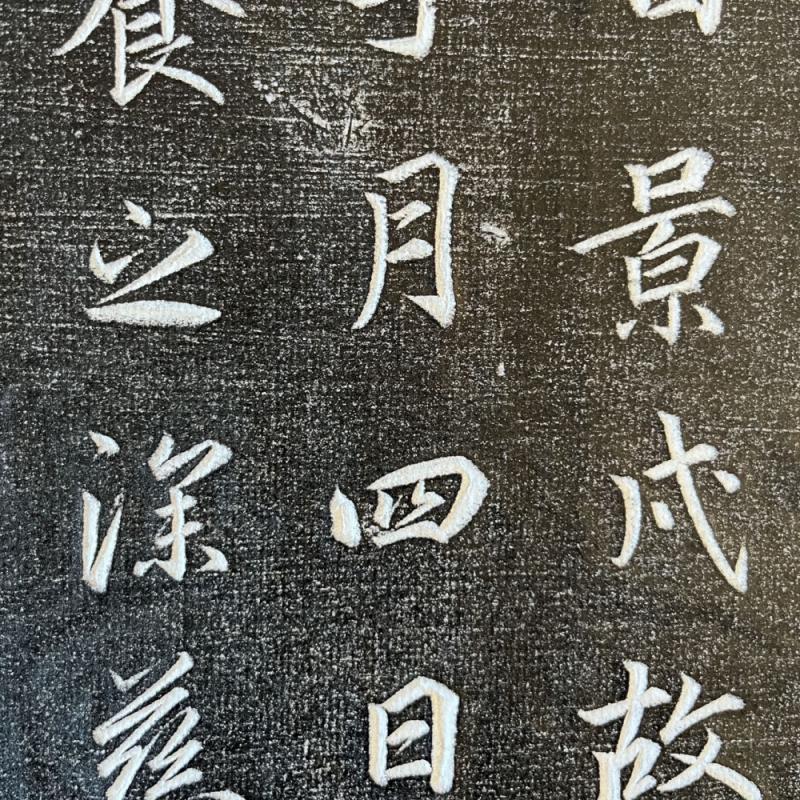 景戌故
月四日
立深慈